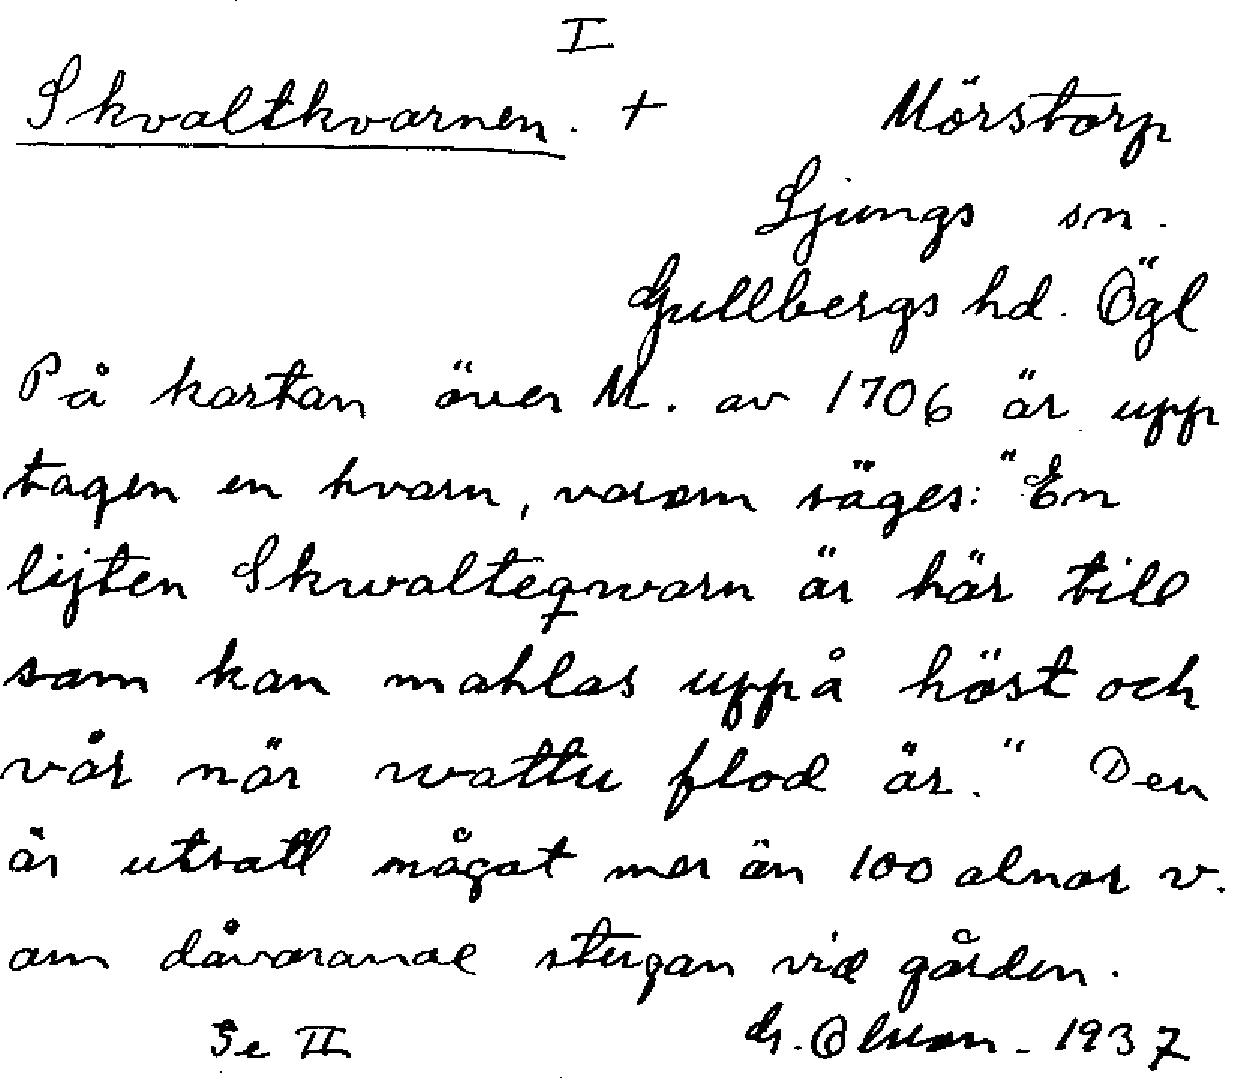 I
Skvaltkvarnen. + Mörstorp
Ljungs sn.
Gullbergs hd. Ögl
På kartan över M. av 1706 är upp
tagen en kvarn, varom säges: "En
lijten Skwalteqwarn är här till
som kan mahlas uppå höst och
vår när wattu flod är." Den
är utsatt något mer än 100 alnar v.
om dåvarande stugan vid gården.
Se II G. Olsson - 1937